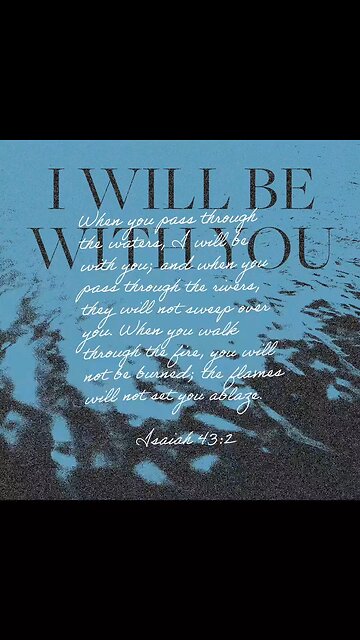 I WILL BE
WITH YOU
When you pass through
the waters, I will be
with you; and when you
pass through the rivers,
they will not sweep over
you. When you walk
through the fire, you will
not be burned; the flames
will not set you ablaze.
Isaiah 43:2